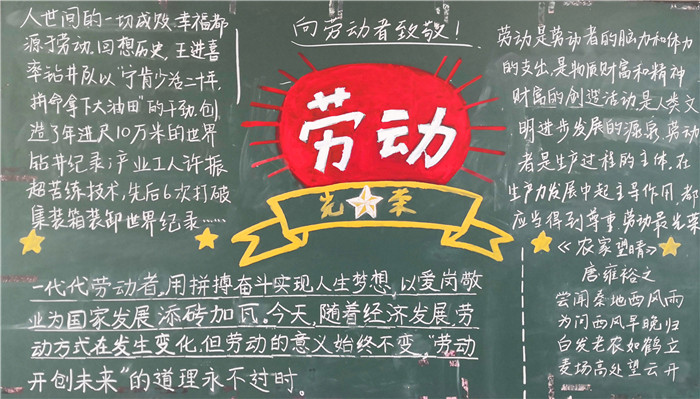 人世间的一切成效、幸福都
源于劳动,回想历史,王进喜
率钻井队以“宁肯少活二十年,
拼命拿下大油田”的干劲,创
造了年进尺10万米的世界
钻井纪录;产业工人许振
超苦练技术,先后6次打破
集装箱装卸世界纪录……
向劳动者致敬!
劳动
光荣
劳动是劳动者的脑力和体力
的支出,是物质财富和精神
财富的创造活动是人类文
明进步发展的源泉,劳动
者是生产过程的主体,在
生产力发展中起主导作用,都
应当得到尊重,劳动最光荣
《农家望晴》
唐雍裕之
尝闻秦地西风雨
为问西风早晚归
白发老农如鹤立
麦场高处望云开
一代代劳动者,用拼搏奋斗实现人生梦想,以爱岗敬
业为国家发展添砖加瓦。今天,随着经济发展,劳
动方式在发生变化,但劳动的意义始终不变,“劳动
开创未来”的道理永不过时。